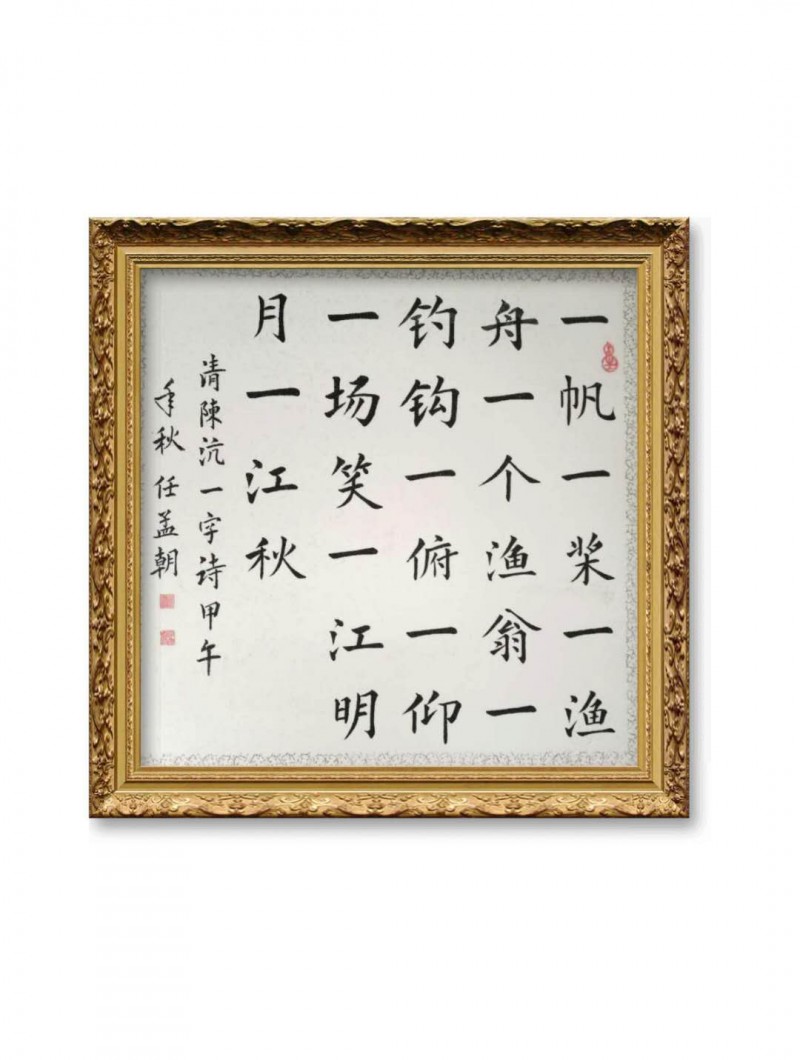 一帆一桨一渔
舟一个渔翁一
钓钩一俯一仰
一场笑一江明
月一江秋
清陳沆一字诗甲午
年秋任孟朝